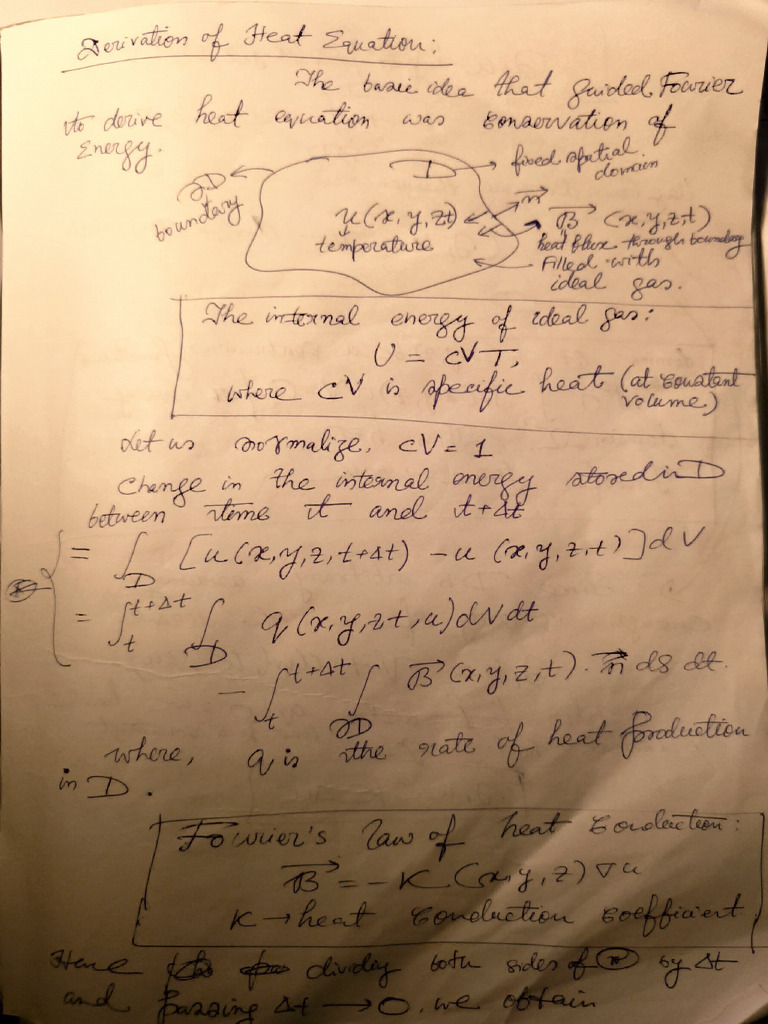 Derivation of Heat Equation:
The basic idea that guided Fourier
to derive heat equation was conservation of
Energy.
D → fixed spatial
domain
∂D
boundary
u(x,y,zt)
temperature
n⃗
B⃗ (x,y,z,t)
heat flux through boundary
Filled with
ideal gas.
The internal energy of ideal gas:
U = cVT,
where cV is specific heat (at constant
volume.)
Let us normalize, cV = 1
Change in the internal energy stored in D
between time t and t+Δt
= ∫_D [u(x,y,z,t+Δt) - u (x,y,z,t)] dV
= ∫_t^{t+Δt} ∫_D q(x,y,zt,u) dV dt
- ∫_t^{t+Δt} ∫_{∂D} B⃗(x,y,z,t). n⃗ dS dt.
where, q is the rate of heat production
in D.
Fourier's law of heat conduction:
B⃗ = -K (x,y,z) ∇u
K → heat conduction coefficient
Hence dividing both sides of by Δt
and passing Δt → 0, we obtain